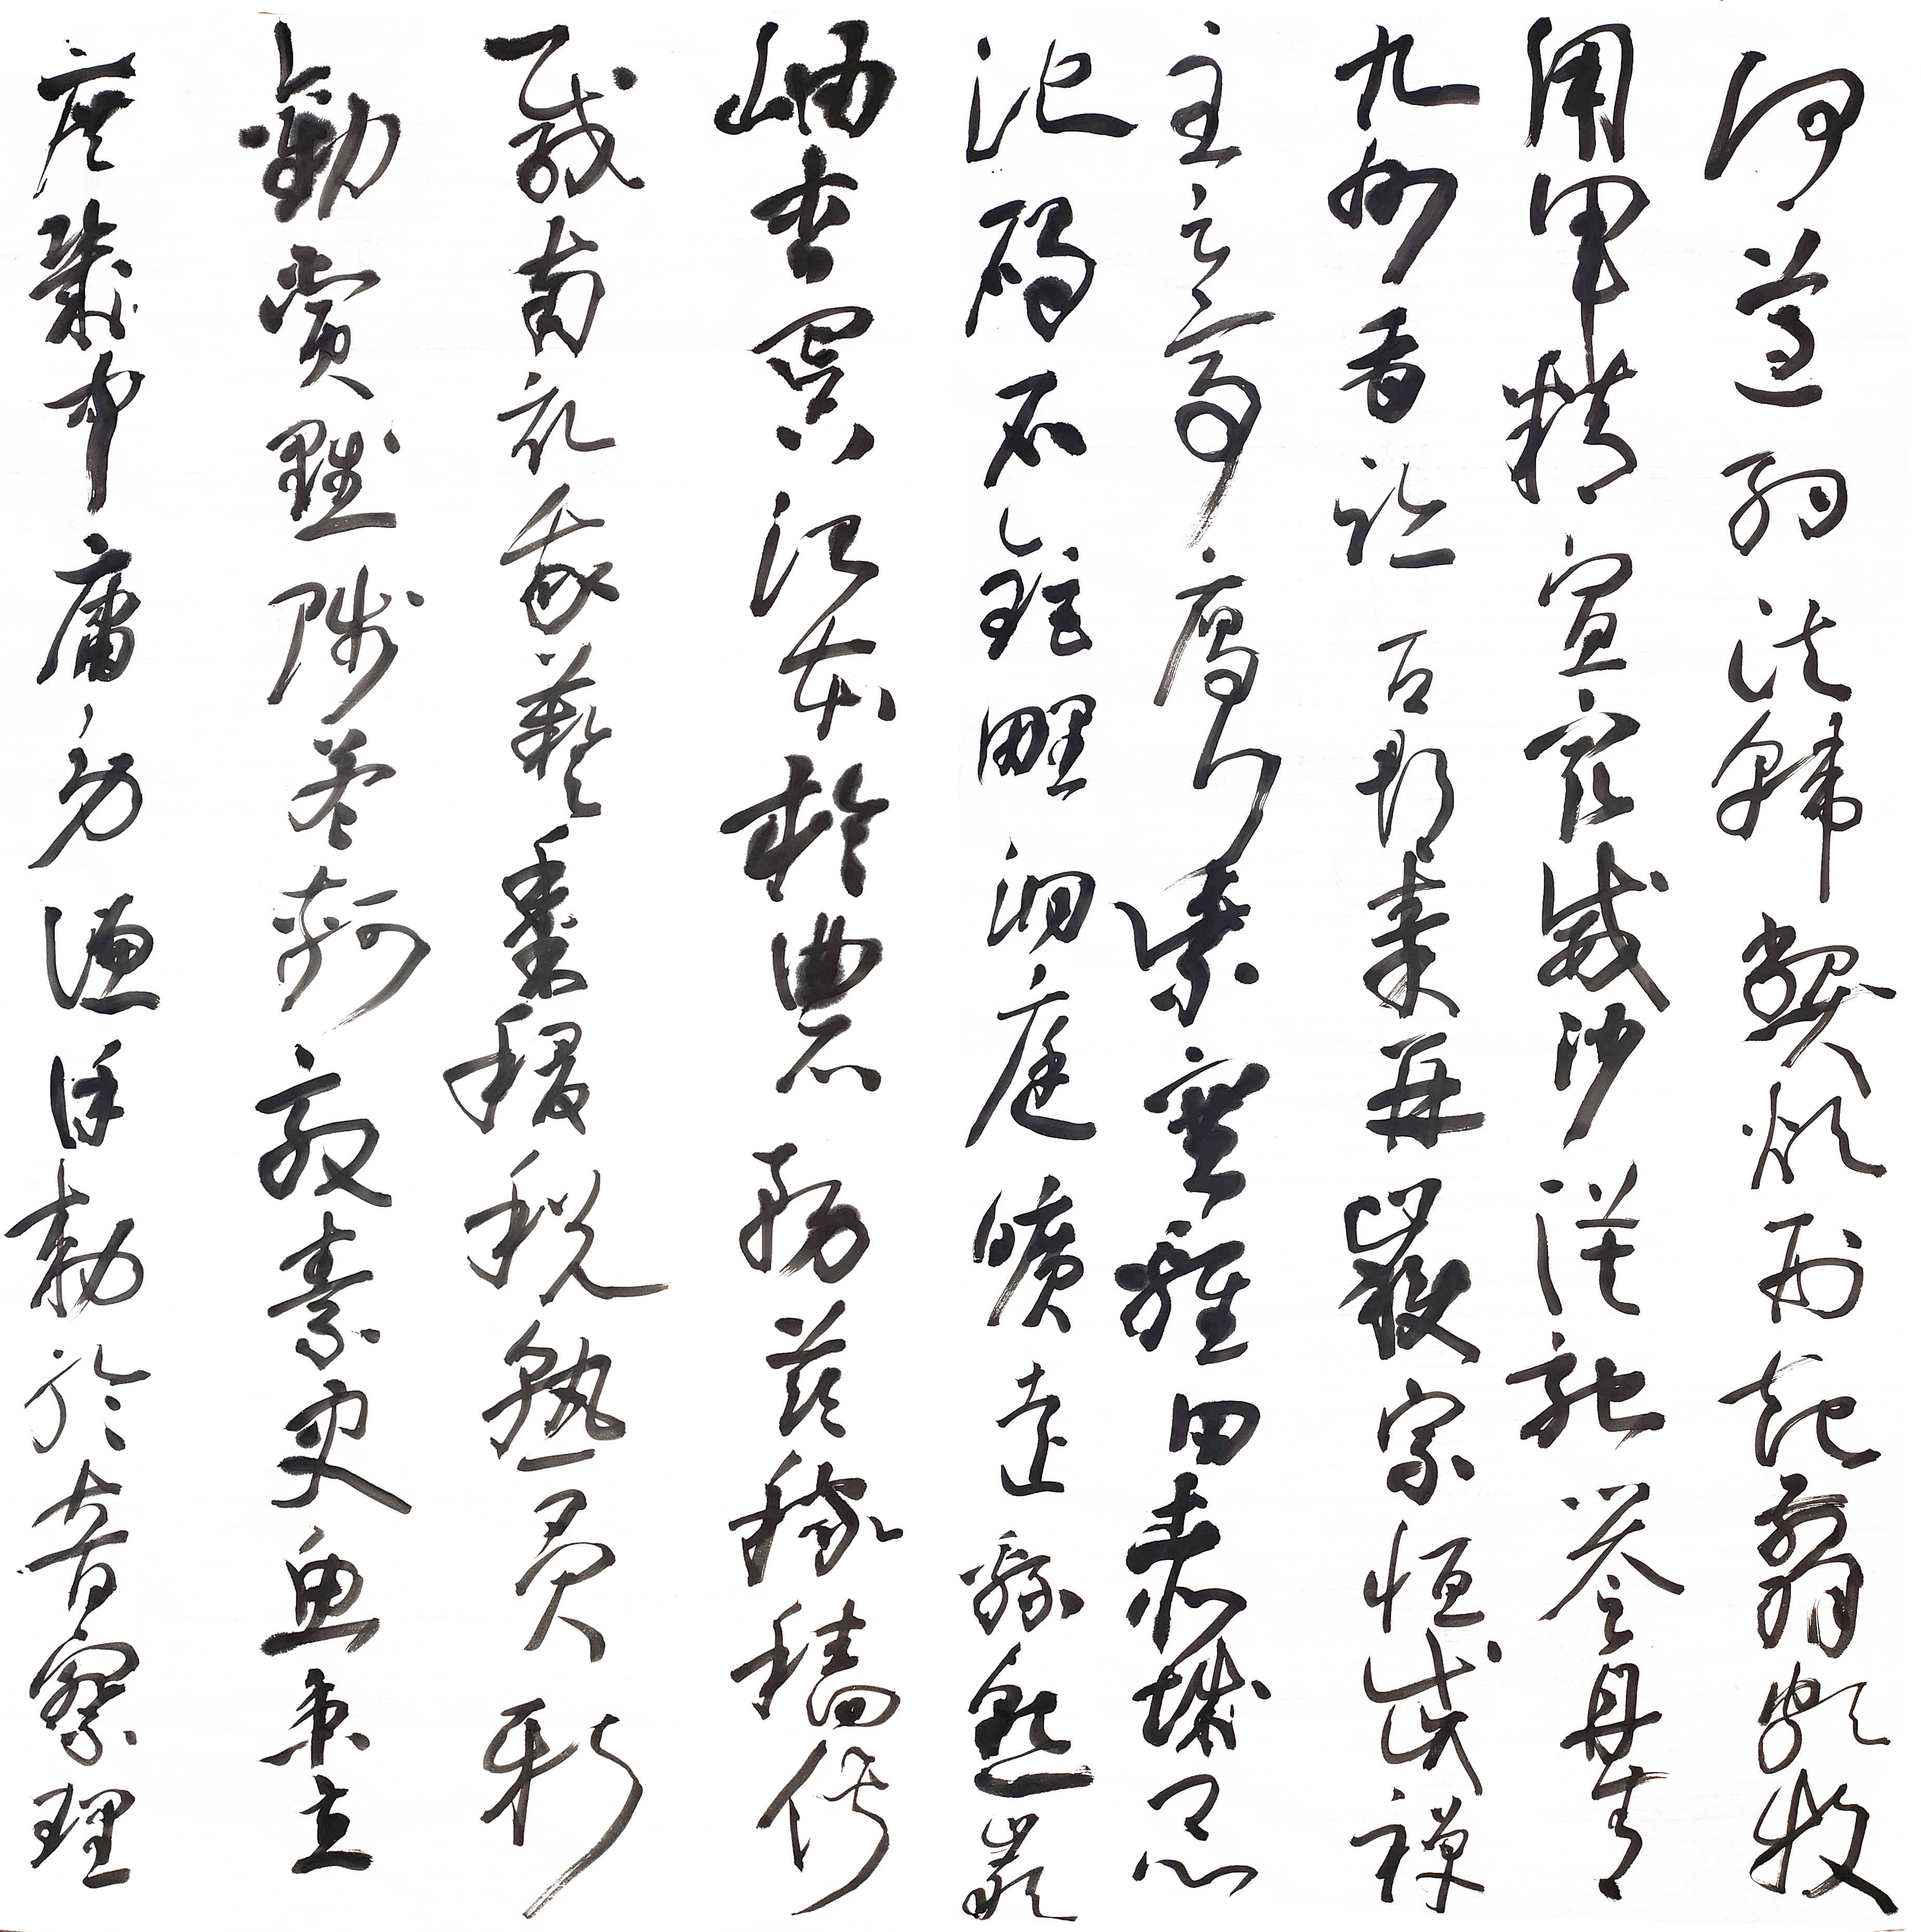 何遵約法韓弊煩刑起翦頗牧
用軍精宣威沙漠馳譽丹青
九州禹跡百郡秦并嶽宗恒岱禪
主云亭雁門紫塞雞田赤城昆
池碣石鉅野洞庭曠遠綿邈巖
岫杳冥治本於農務茲稼穡俶
載南畝我藝黍稷稅熟貢新
勸賞黜陟孟軻敦素史魚秉直
庶幾中庸勞謙謹勅聆音察理